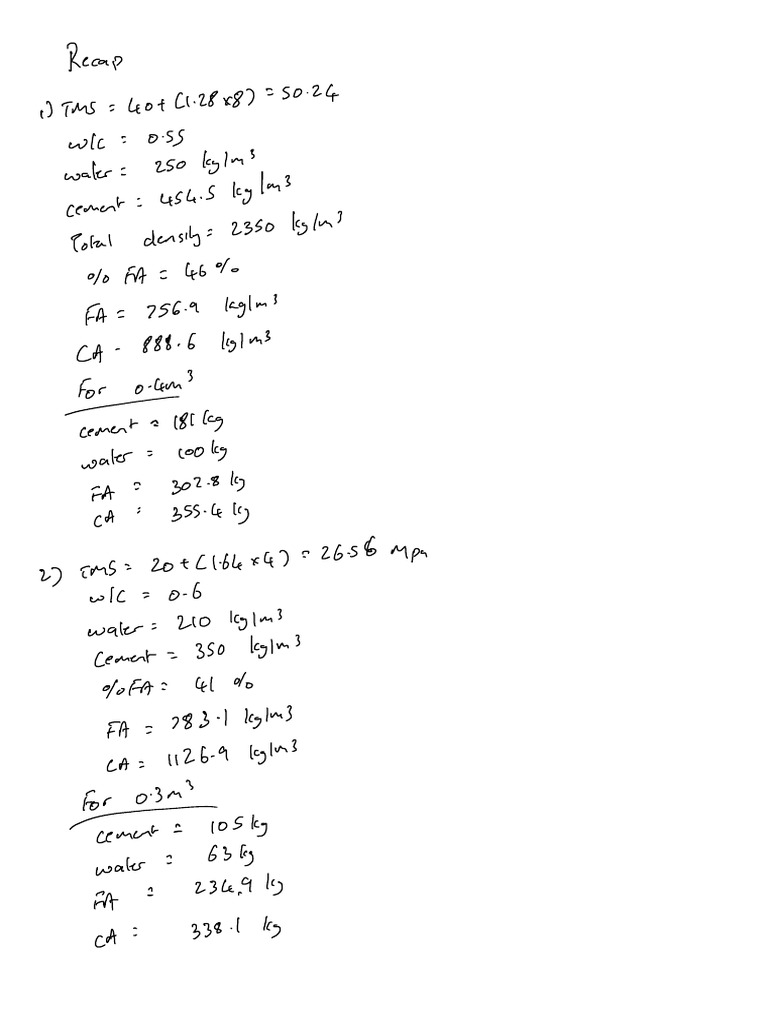 Recap
1) TMS = 40 + (1.28 × 8) = 50.24
w/c = 0.55
water = 250 kg/m³
cement = 454.5 kg/m³
Total density = 2350 kg/m³
% FA = 46 %
FA = 756.9 kg/m³
CA - 888.6 kg/m³
For 0.4m³
cement = 181 kg
water = 100 kg
FA = 302.8 kg
CA = 355.4 kg
2) TMS = 20 + (1.64 × 4) = 26.56 Mpa
w/c = 0.6
water = 210 kg/m³
Cement = 350 kg/m³
% FA = 41 %
FA = 783.1 kg/m³
CA = 1126.9 kg/m³
For 0.3m³
cement = 105 kg
water = 63 kg
FA = 234.9 kg
CA = 338.1 kg